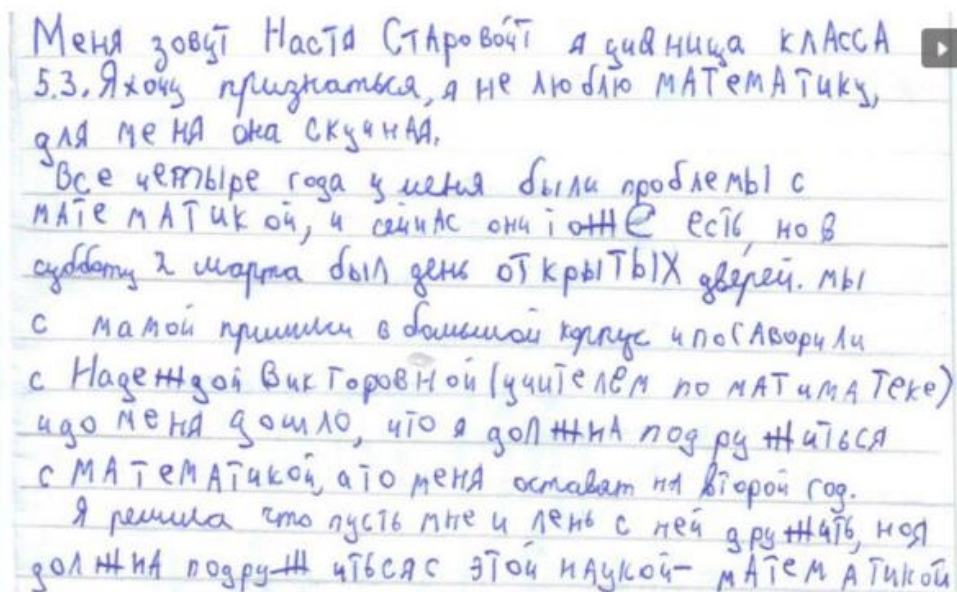 Меня зовут Настя Старовойт я учяница класса
5.3. Я хочу признаться, я не люблю математику,
для меня она скучная.
Все четыре года у меня были проблемы с
математикой, и сейчас они тоже есть, но в
субботу 2 марта был день открытых дверей. мы
с мамой пришли в большой корпус и погаворили
с Надеждой Викторовной (учителем по матиматеке)
идо меня дошло, что я должна подружиться
с математикой, а то меня оставят на второй год.
Я решила что пусть мне и лень с ней дружить, ноя
должна подружиться с этой наукой- математикой